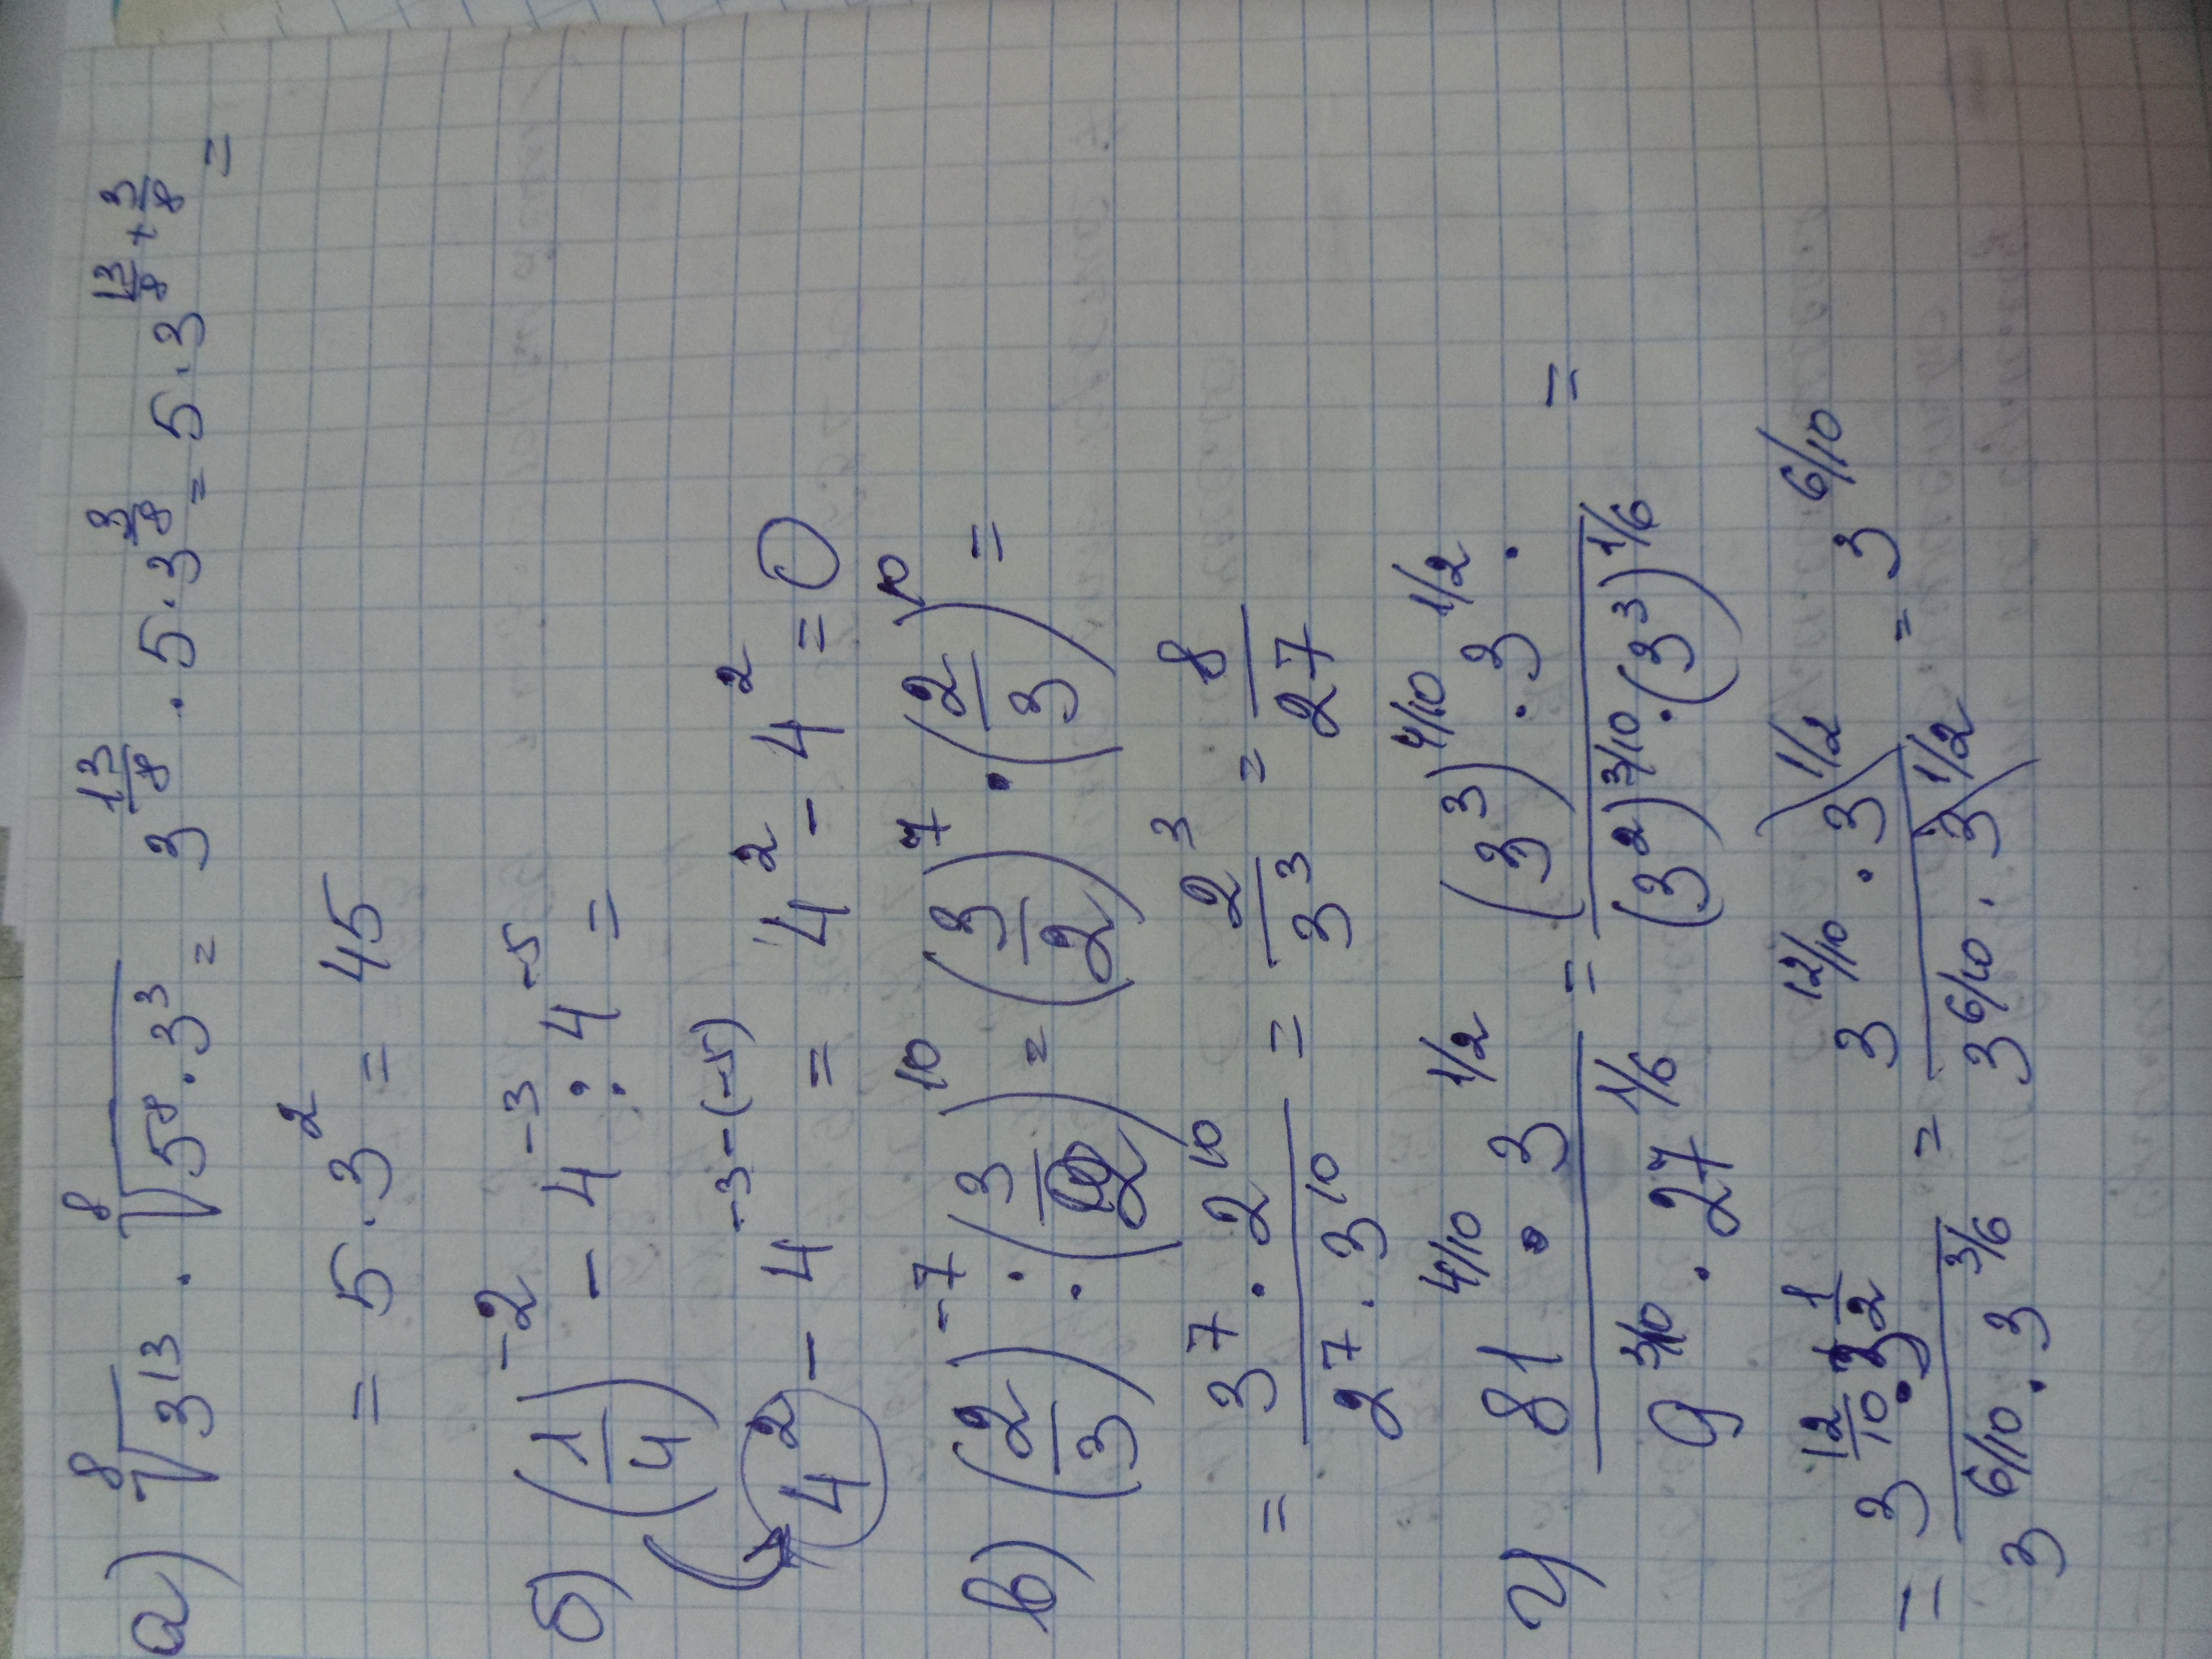 а) ⁸√3¹³ · ⁸√5⁸·3³ = 3^13/8 · 5·3^3/8 = 5·3^13/8+3/8 =
= 5·3² = 45
б) (1/4)⁻² − 4⁻³ : 4⁻⁵ =
4² − 4^−3−(−5) = 4² − 4² = 0
в) (2/3)⁻⁷ · (3/2)¹⁰ = (3/2)⁷ · (2/3)¹⁰ =
= 3⁷·2¹⁰ / 2⁷·3¹⁰ = 2³/3³ = 8/27
г) 81^4/10 · 3^1/2 / 9^3/10 · 27^1/6 = (3³)^4/10 · 3^1/2 · / (3²)^3/10 · (3³)^1/6 =
= 3^12/10 · 3^1/2 / 3^6/10 · 3^3/6 = 3^12/10 · 3^1/2 / 3^6/10 · 3^1/2 = 3^6/10